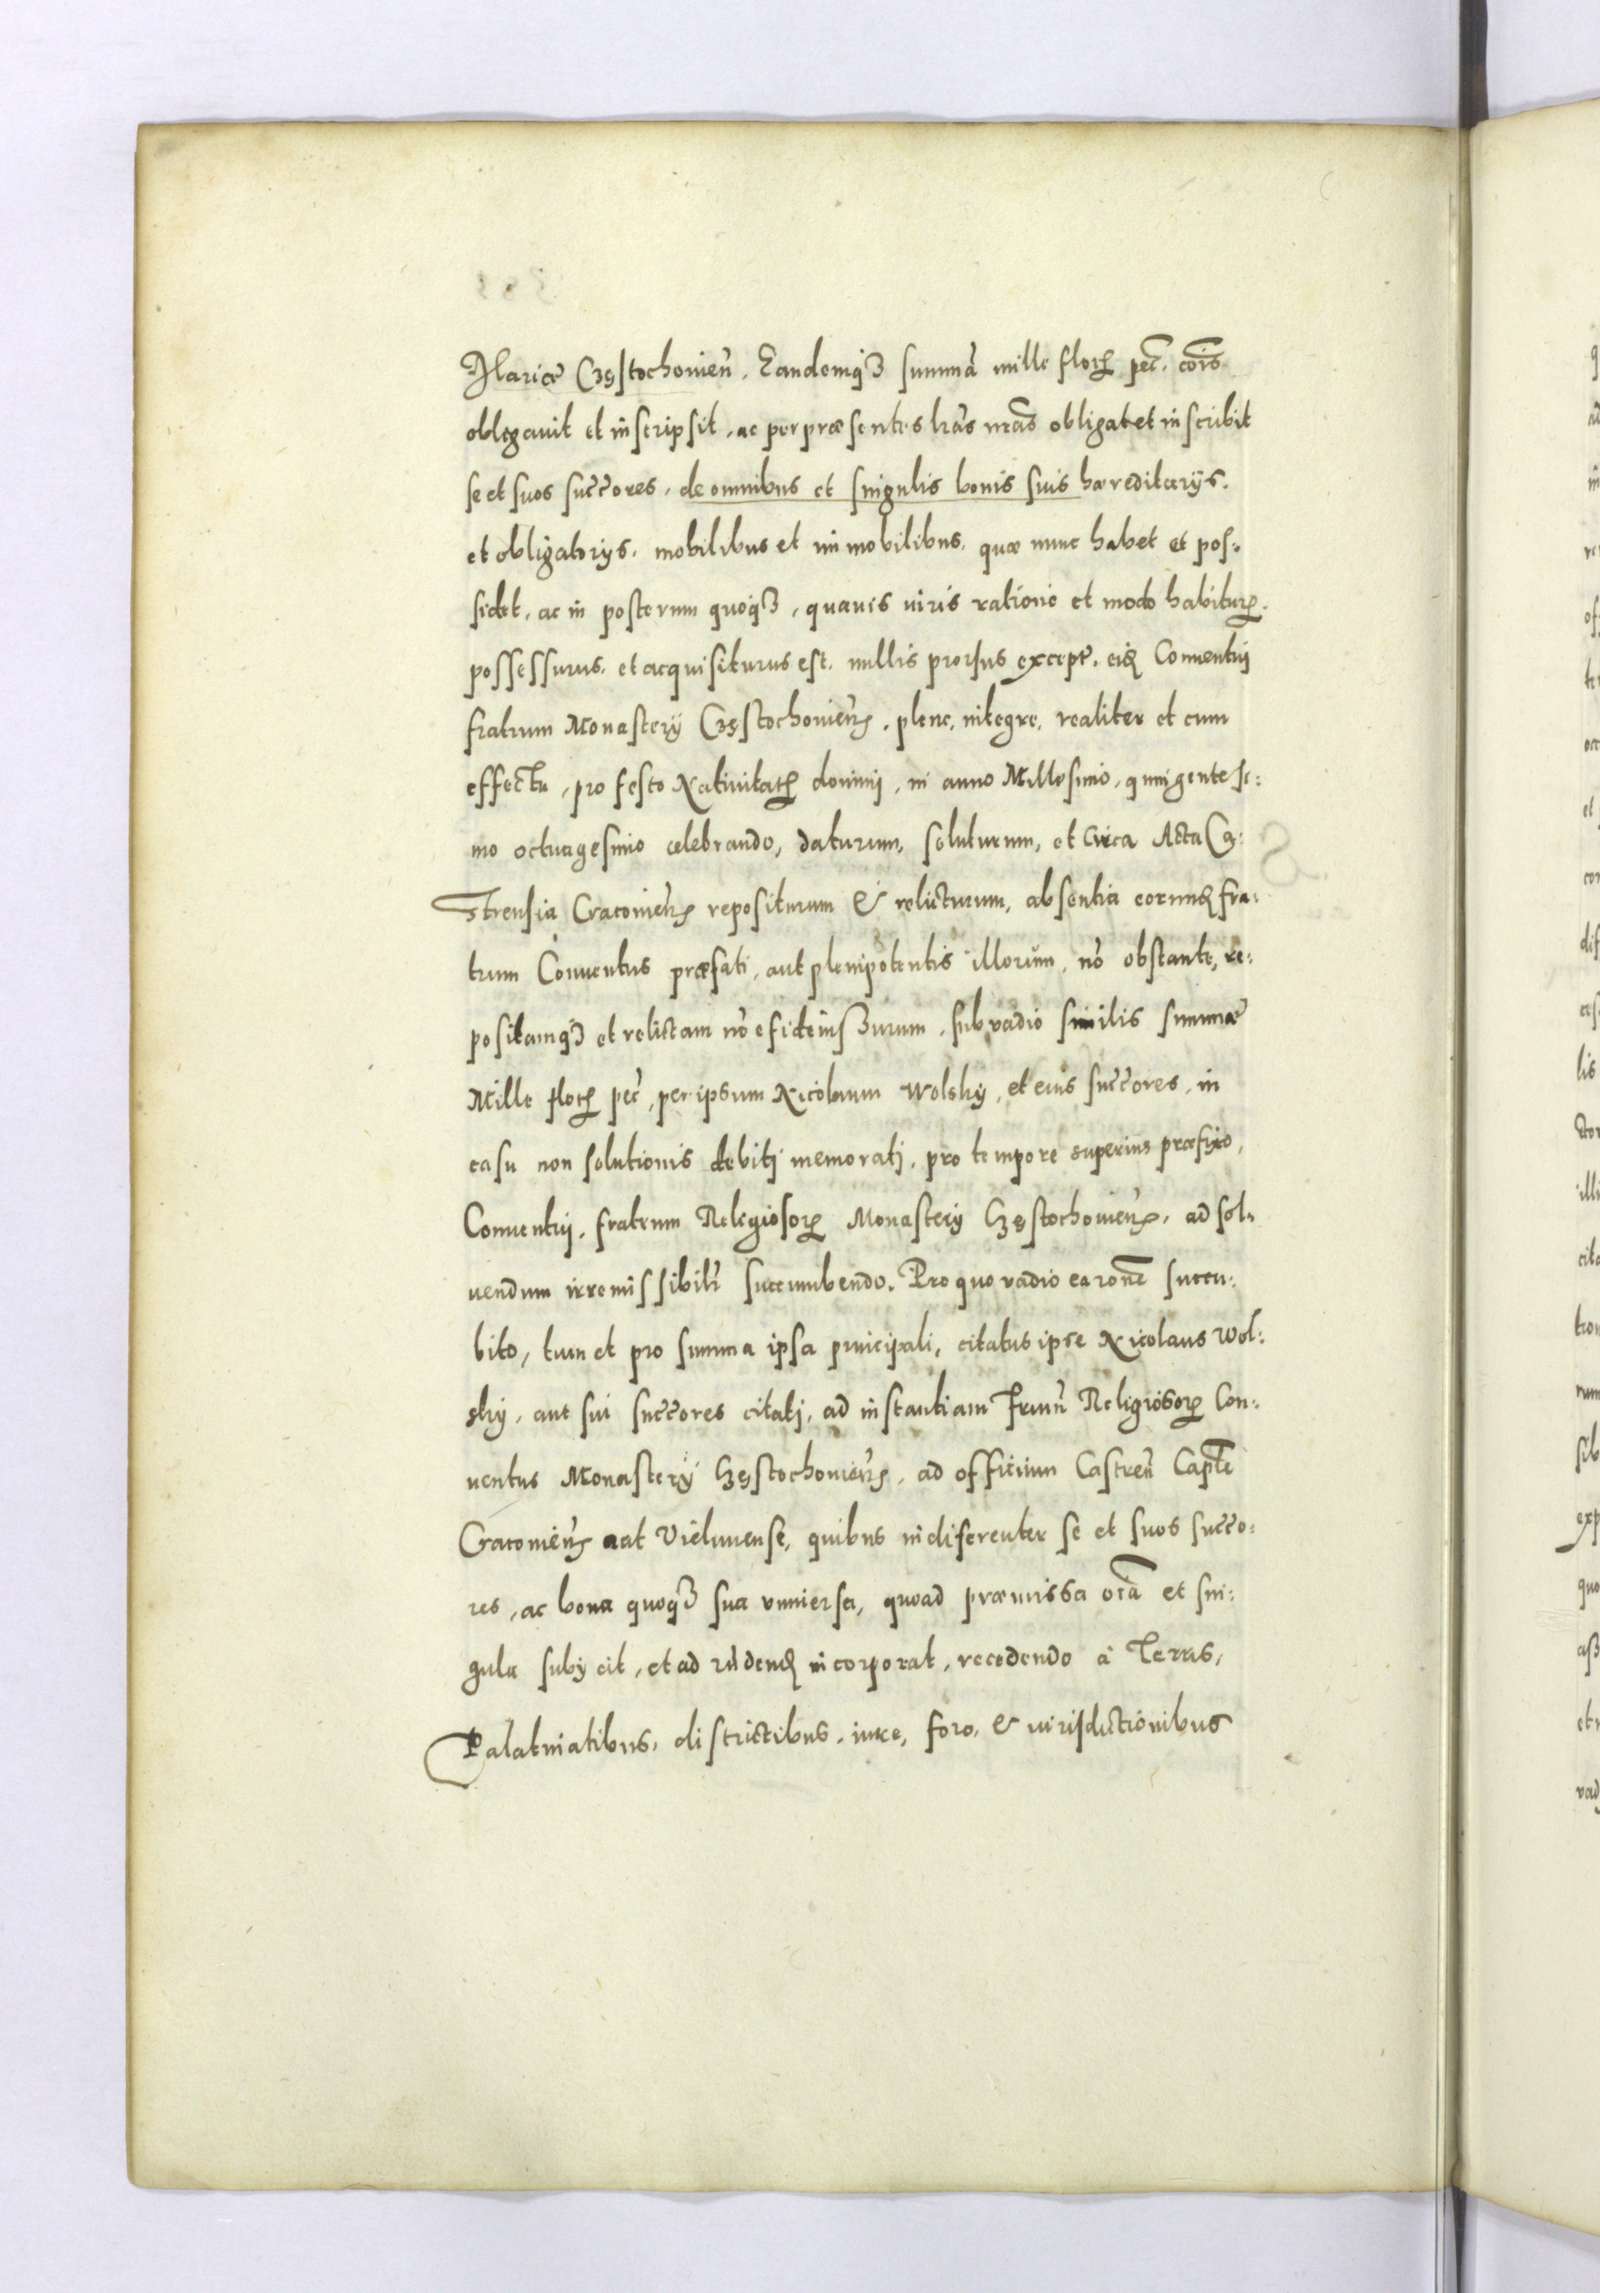 Mariæ Częstochovien̄. Eandemq₃ summā mille floꝝ pec̄. cōis
obligavit et inscripsit, ac per præsentes lrās nrās obligat et inscribit
se et suos succ̄ores, de omnibus et singulis bonis suis hæreditariys.
et obligatorys, mobilibus et immobilibus, quæ nunc habet et pos:
sidet, ac in posterum quoq₃, quavis iuris ratione et modo habituꝝ.
possessurus, et acquisiturus est, nullis prorsus except. eid Conventuj
fratrum Monastery Częstochovien̄, plene, integre, realiter et cum
effectu, pro festo Nativitatꝭ dominj, in anno Millesimo, quingentesi:
mo octuagesimo celebrando, daturum, soluturum, et Circa Acta Ca:
strensia Cracovien̄ repositurum & relicturum, absentia eorund fra:
trum Conventus præfati, aut plenipotentis illorum, nō obstante, re:
positamq₃ et relictam nō efideiussurum, sub vadio similis summæ
Mille floꝝ pec̄, per ipsum Nicolaum Wolsky, et eius succ̄ores, in
casu non solutionis debitj memoratj, pro tempore superius præfixo,
Conventuj, fratrum Religiosoꝝ Monastery Częstochovien̄, ad sol:
uendum irremissibilr̄ succumbendo. Pro quo vadio ea rōne succu:
bito, tum et pro summa ipsa principali, citatus ipse Nicolaus Wol:
sky, aut sui succ̄ores citatj, ad instantiam Frum̄ Religiosoꝝ Con:
ventus Monastery Częstochovien̄, ad officium Castren̄ Capitle
Cracovien̄ aut Vielunense, quibus indiferenter se et suos succo:
res, ac bona quoq₃ sua universa, quoad præmissa oīa et sin:
gula subycit, et ad incorporat, recedendo à Terris,
Palatinatibus, districtibus, iure, foro, & iurisdictionibus